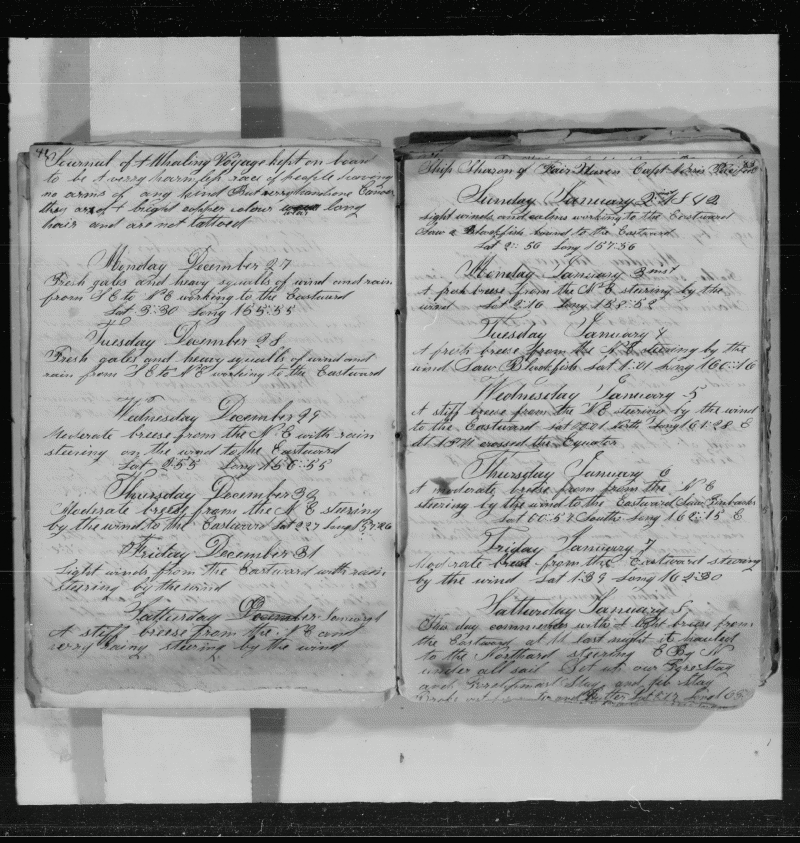 Journal of A Whaling Voyage kept on board
to be A verry harmless race of people having
no arms of any kind But verry handsome Canoes
they are of A bright copper colour long
hair and are not tattooed
Monday December 27
Fresh gales and heavy squalls of wind and rain
from S E to N E working to the Eastward
Lat 3:30 Long 155:55
Tuesday December 28
Fresh gales and heavy squalls of wind and
rain from S E to N E working to the Eastward
Wednesday December 29
Moderate breese from the N E with rain
steering on the wind to the Eastward
Lat 2:55 Long 156:55
Thursday December 30
Moderate breese from the N E steering
by the wind to the Eastward Lat 2:27 Long 157:26
Friday December 31
Light winds from the Eastward with rain
steering by the wind
Satturday December January
A stiff breese from the N E and
verry steering by the wind
Ship Sharon of Fair Haven Capt Norris
Sunday January 2nd 1842
Light winds and calms working to the Eastward
Saw a Blackfish bound to the Eastward
Lat 2:56 Long 157:56
Monday January 3
A fresh breese from the N E steering by the
wind Lat 2:16 Long 158:52
Tuesday January 4
A fresh breese from the N E steering by the
wind Saw Blackfish Lat 1:01 Long 160:16
Wednesday January 5
A stiff breese from the N E steering by the wind
to the Eastward Lat North Long 161:28 E
At 1 P M crossed the Equator
Thursday January 6
A moderate breese from from the N E
steering by the wind to the Eastward Saw Finbacks
Lat 00:54 South Long 162:15 E
Friday January 7
Moderate breese from the Eastward steering
by the wind Lat 1:39 Long 162:30
Satturday January 8
This day commences with A light breese from
the Eastward at M last night it hauled
to the Northard steering E By N
under all sail Set up our Fore Stay
and Foretopmast Stay and jib Stay